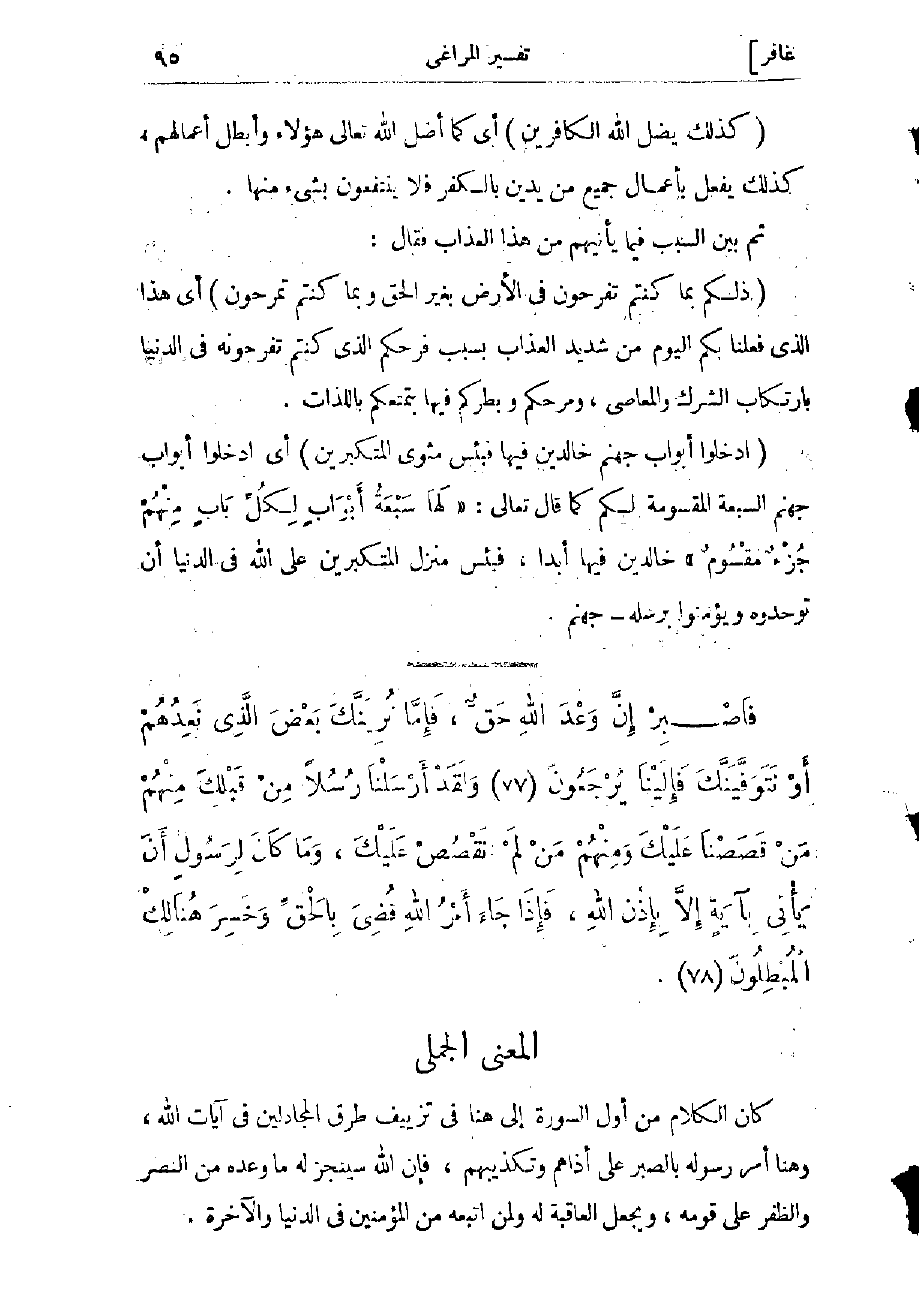 غافر] تفسير المراغى ٩٥
( كذلك يضل الله الكافرين ) أى كما أضل الله تعالى هؤلاء وأبطل أعمالهم ،
كذلك يفعل بأعمال جميع من يدين بالكفر فلا ينتفعون بشىء منها .
ثم بين السبب فيما يأتيهم من هذا العذاب فقال :
( ذلكم بما كنتم تفرحون فى الأرض بغير الحق وبما كنتم تمرحون ) أى هذا
الذى فعلنا بكم اليوم من شديد العذاب بسبب فرحكم الذى كنتم تفرحونه فى الدنيا
بارتكاب الشرك والمعاصى ، ومرحكم وبطركم فيها بتمتعكم باللذات .
( ادخلوا أبواب جهنم خالدين فيها فبئس مثوى المتكبرين ) أى ادخلوا أبواب
جهنم السبعة المقسومة لكم كما قال تعالى : « لَهَا سَبْعَةُ أَبْوَابٍ لِكُلِّ بَابٍ مِنْهُمْ
جُزْءٌ مَقْسُومٌ » خالدين فيها أبدا ، فبئس منزل المتكبرين على الله فى الدنيا أن
توحدوه ويؤمنوا برسله – جهنم .
فَاصْبِرْ إِنَّ وَعْدَ اللهِ حَقٌّ ، فَإِمَّا نُرِيَنَّكَ بَعْضَ الَّذِى نَعِدُهُمْ
أَوْ نَتَوَفَّيَنَّكَ فَإِلَيْنَا يُرْجَعُونَ (٧٧) وَلَقَدْ أَرْسَلْنَا رُسُلاً مِنْ قَبْلِكَ مِنْهُمْ
مَنْ قَصَصْنَا عَلَيْكَ وَمِنْهُمْ مَنْ لَمْ نَقْصُصْ عَلَيْكَ ، وَمَا كَانَ لِرَسُولٍ أَنْ
يَأْتِىَ بِآيَةٍ إِلاَّ بِإِذْنِ اللهِ ، فَإِذَا جَاءَ أَمْرُ اللهِ قُضِىَ بِالْحَقِّ وَخَسِرَ هُنَالِكَ
الْمُبْطِلُونَ (٧٨) .
المعنى الجملى
كان الكلام من أول السورة إلى هنا فى تزييف طرق المجادلين فى آيات الله ،
وهنا أمر رسوله بالصبر على أذاهم وتكذيبهم ، فإن الله سينجز له ما وعده من النصر
والظفر على قومه ، ويجعل العاقبة له ولمن اتبعه من المؤمنين فى الدنيا والآخرة .